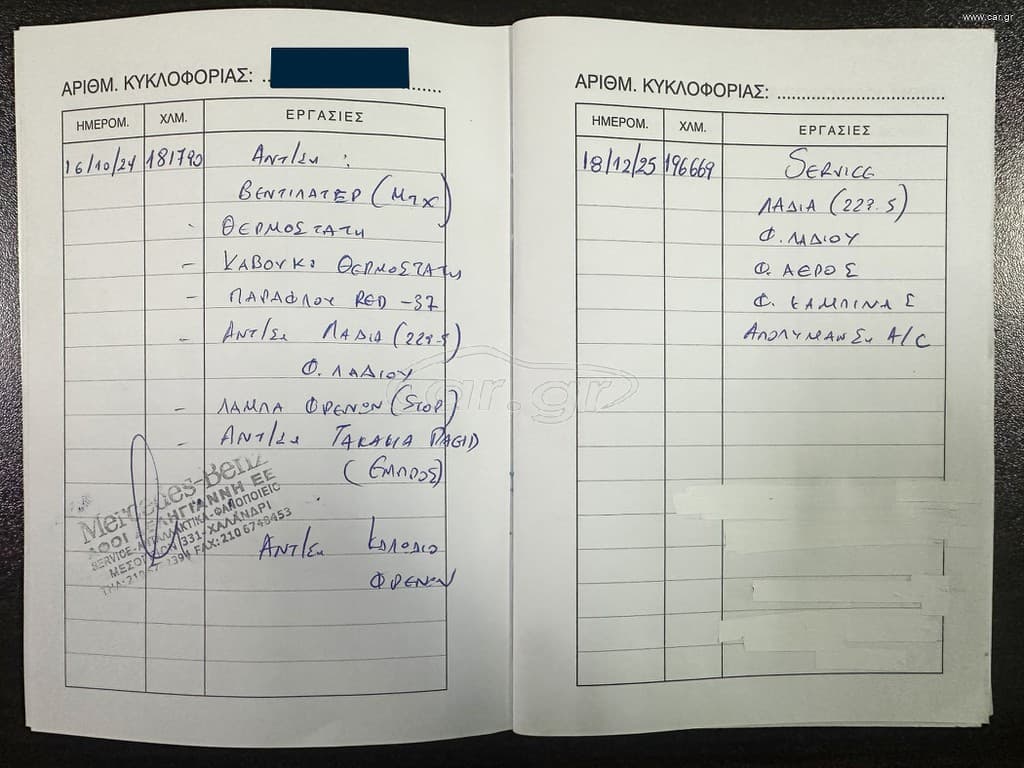 www.car.gr
ΑΡΙΘΜ. ΚΥΚΛΟΦΟΡΙΑΣ: ..........
ΗΜΕΡΟΜ. ΧΛΜ. ΕΡΓΑΣΙΕΣ
16/10/24 181790 ΑΝΤ/ΣΗ :
ΒΕΝΤΙΛΑΤΕΡ (ΜΤΧ)
- ΘΕΡΜΟΣΤΑΤΗ
- ΚΑΒΟΥΚΙ ΘΕΡΜΟΣΤΑΤΗ
- ΠΑΡΑΦΛΟΥ RED -37
- ΑΝΤ/ΣΗ ΛΑΔΙΑ (229.5)
Φ. ΛΑΔΙΟΥ
- ΛΑΜΠΑ ΦΡΕΝΩΝ (STOP)
- ΑΝΤ/ΣΗ ΤΑΚΑΚΙΑ PAGID
(ΕΜΠΡΟΣ)
Mercedes-Benz
ΑΦΟΙ ΔΕΛΗΓΙΑΝΝΗ ΕΕ
SERVICE-ΑΝΤΑΛΛΑΚΤΙΚΑ-ΦΑΝΟΠΟΙΕΙΟ
331-ΧΑΛΑΝΔΡΙ
FAX: 210 6748453
ΑΝΤ/ΣΗ ΚΑΛΩΔΙΟ
ΦΡΕΝΩΝ
ΑΡΙΘΜ. ΚΥΚΛΟΦΟΡΙΑΣ: ..........
ΗΜΕΡΟΜ. ΧΛΜ. ΕΡΓΑΣΙΕΣ
18/12/25 196669 SERVICE
ΛΑΔΙΑ (229.5)
Φ. ΛΑΔΙΟΥ
Φ. ΑΕΡΟΣ
Φ. ΚΑΜΠΙΝΑΣ
ΑΠΟΛΥΜΑΝΣΗ A/C
car.gr